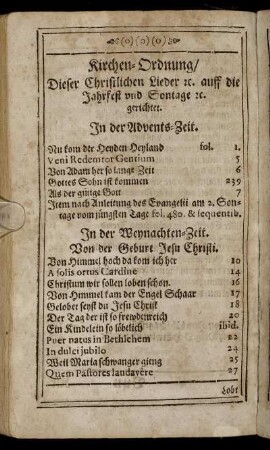 (o)(o)(o)
Kirchen-Ordnung/
Dieser Christlichen Lieder ꝛc. auff die
Jahrfest vnd Sontage ꝛc.
gerichtet.
In der Advents-Zeit.
Nu kom der Heyden Heyland fol. 1.
Veni Redemtor Gentium 5
Von Adam her so lange Zeit 6
Gottes Sohn ist kommen 239
Als der gütige Gott 7
Item nach Anleitung des Evangelii am 2. Son-
tage vom jüngsten Tage fol. 480. & sequentib.
In der Weynachten-Zeit.
Von der Geburt Jesu Christi.
Von Himmel hoch da kom ich her 10
A solis ortus Cardine 14
Christum wir sollen loben schon. 16
Von Himmel kam der Engel Schaar 17
Gelobet seyst du Jesu Christ 18
Der Tag der ist so frewdenreich 20
Ein Kindelein so löbelich ibid.
Puer natus in Bethlehem 22
In dulci jubilo 24
Weil Maria schwanger gieng 25
Quem Pastores laudavêre 27
Lobt